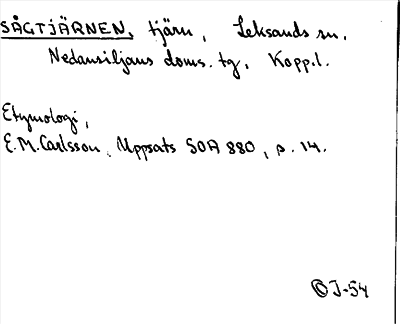 SÅGTJÄRNEN, tjärn, Leksands sn.
Nedansiljans doms. tg. Kopp.l.
Etymologi,
E.M. Carlsson, Uppsats SOA 880, p. 14.
J-54